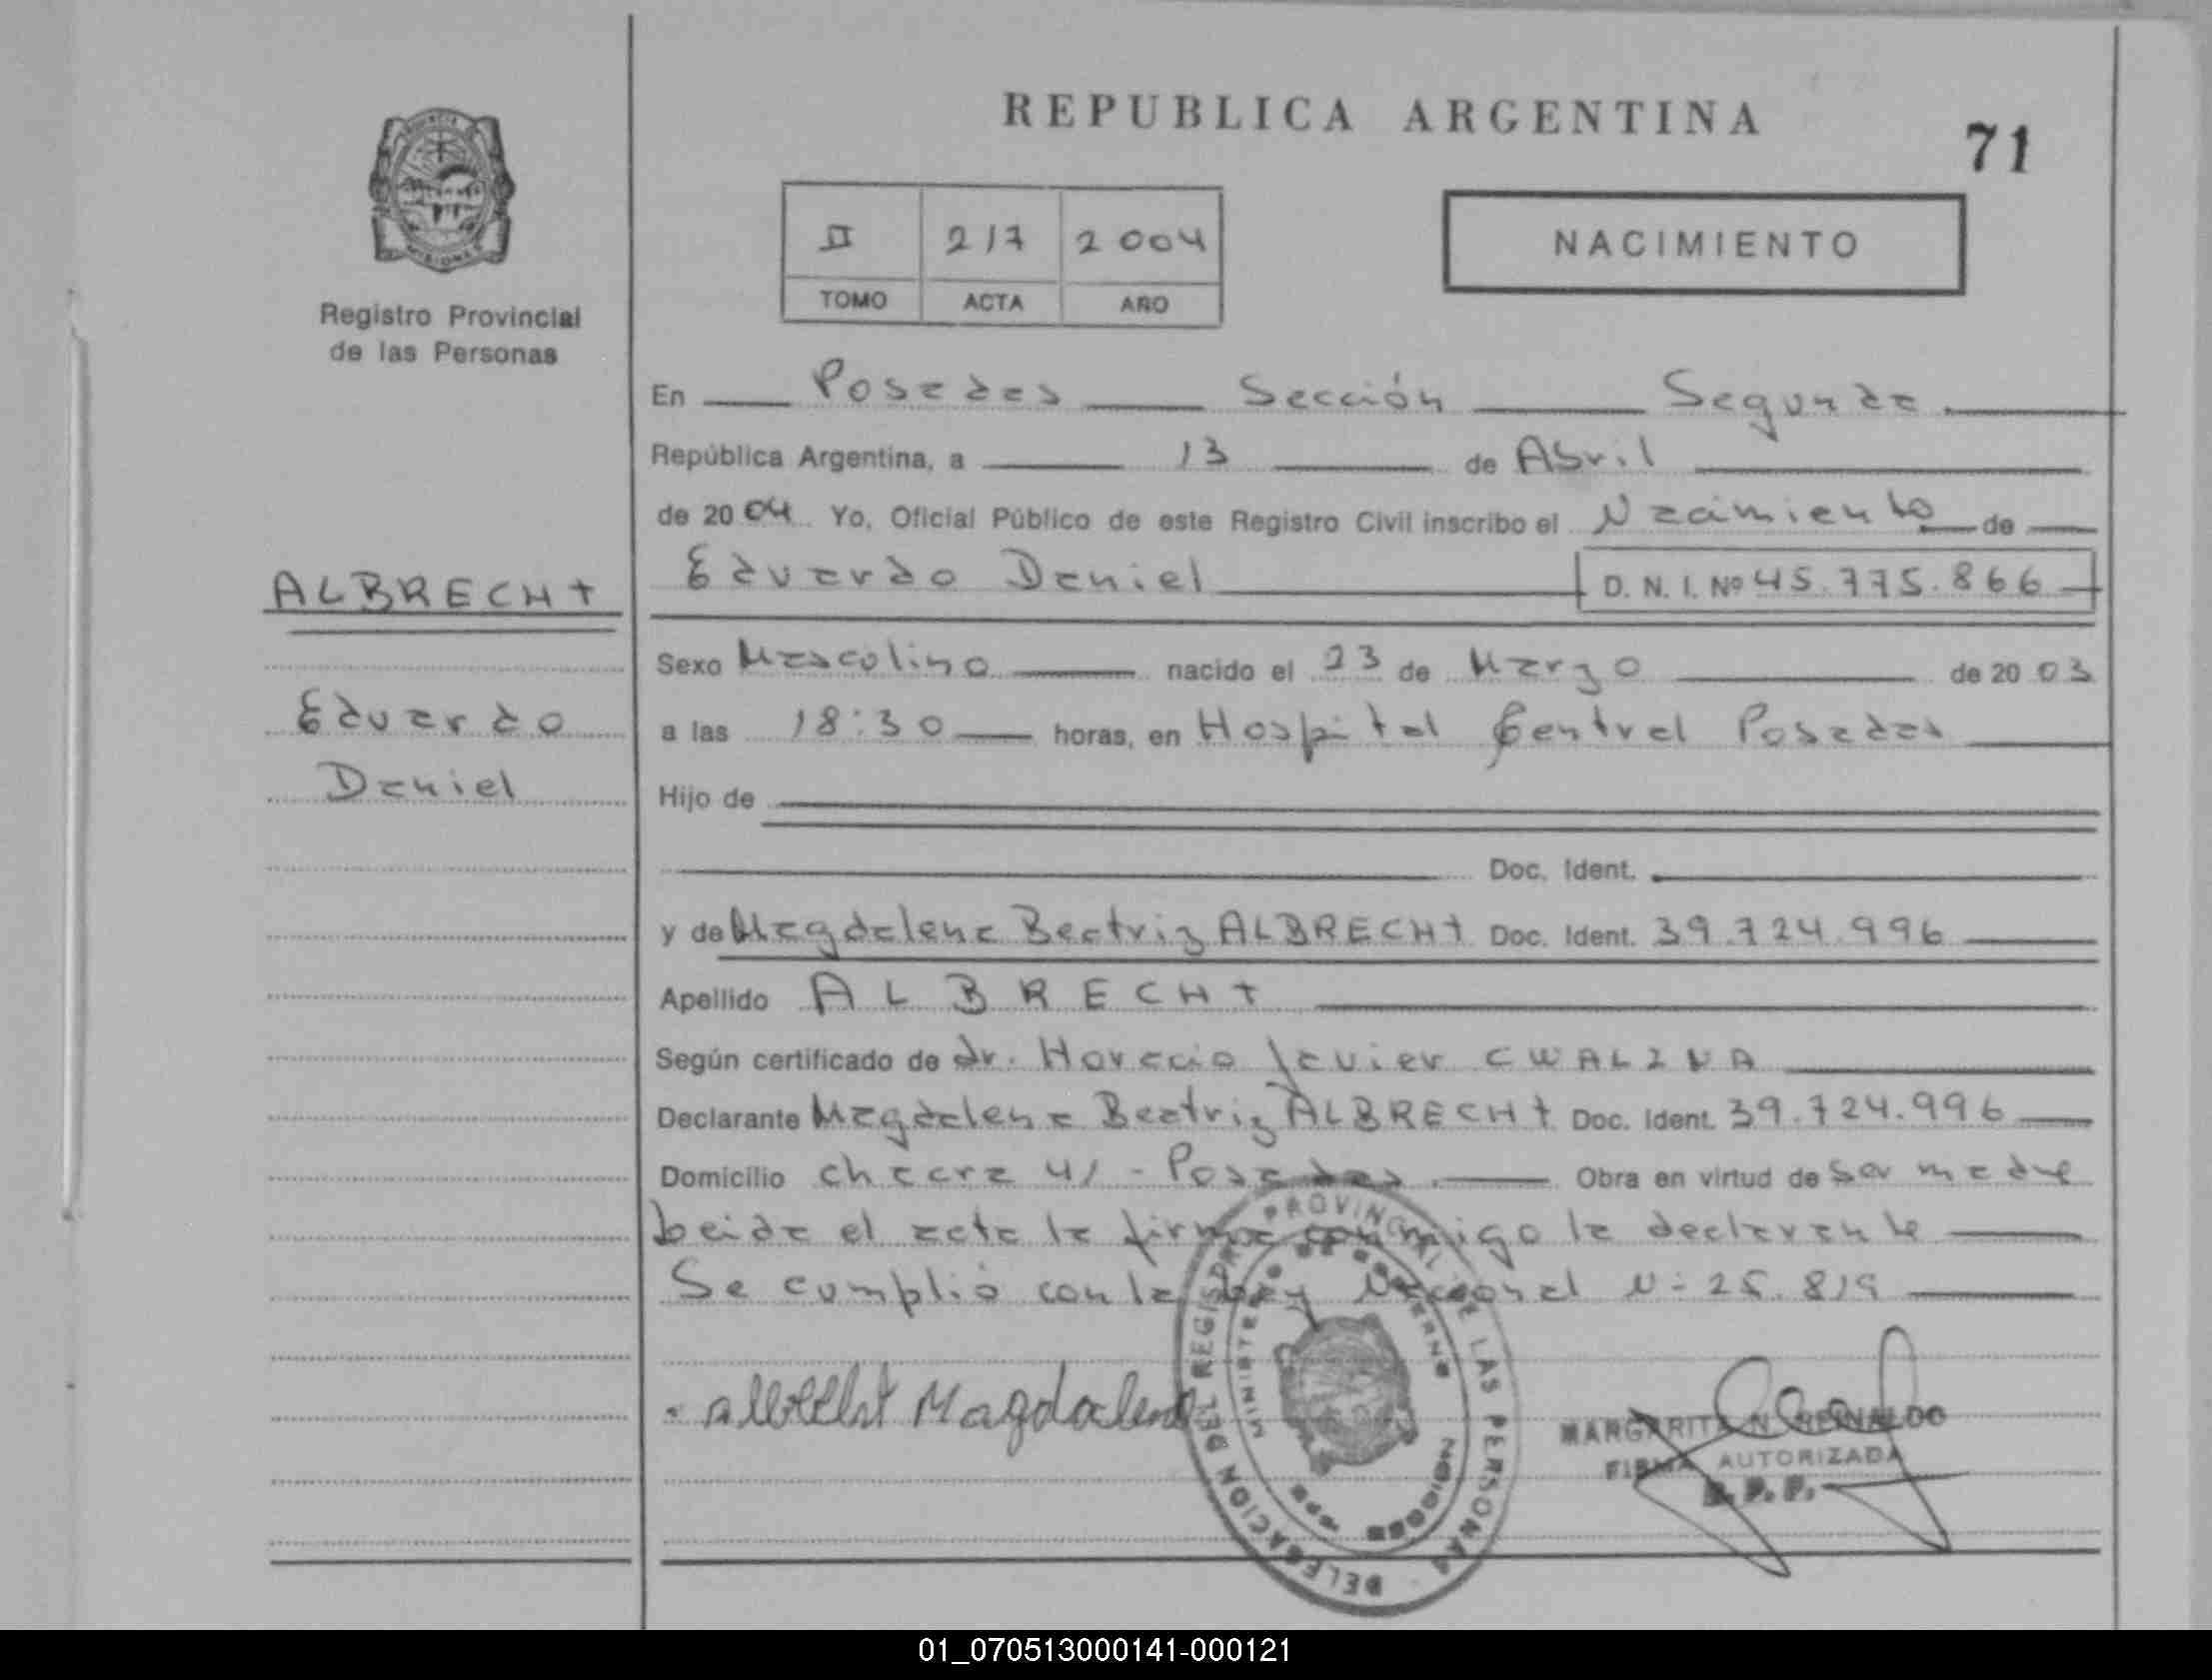 REPUBLICA ARGENTINA
71
II 217 2004
TOMO ACTA AÑO
NACIMIENTO
Registro Provincial
de las Personas
En Posadas Sección Segunda.
República Argentina, a 13 de Abril
de 2004 Yo, Oficial Público de este Registro Civil inscribo el Nacimiento de
Eduardo Daniel D. N. I. Nº 45.775.866
ALBRECHT
Eduardo
Daniel
Sexo Masculino nacido el 23 de Marzo de 2003
a las 18:30 horas, en Hospital Central Posadas
Hijo de
Doc. Ident.
y de Magdalena Beatriz ALBRECHT Doc. Ident. 39.724.996
Apellido ALBRECHT
Según certificado de dr. Horacio Javier CWALINA
Declarante Magdalena Beatriz ALBRECHT Doc. Ident. 39.724.996
Domicilio chacra 41 - Posadas. Obra en virtud de ser madre
Leida el acta la firma conmigo la declarante
Se cumplió con la Ley Nacional N= 25.819
Albrecht Magdalena
DELEGACION DEL REGISTRO PROVINCIAL DE LAS PERSONAS
MINISTERIO DE GOBIERNO
MARGARITA N. REINALDO
FIRMA AUTORIZADA
R. P. P.
01_070513000141-000121